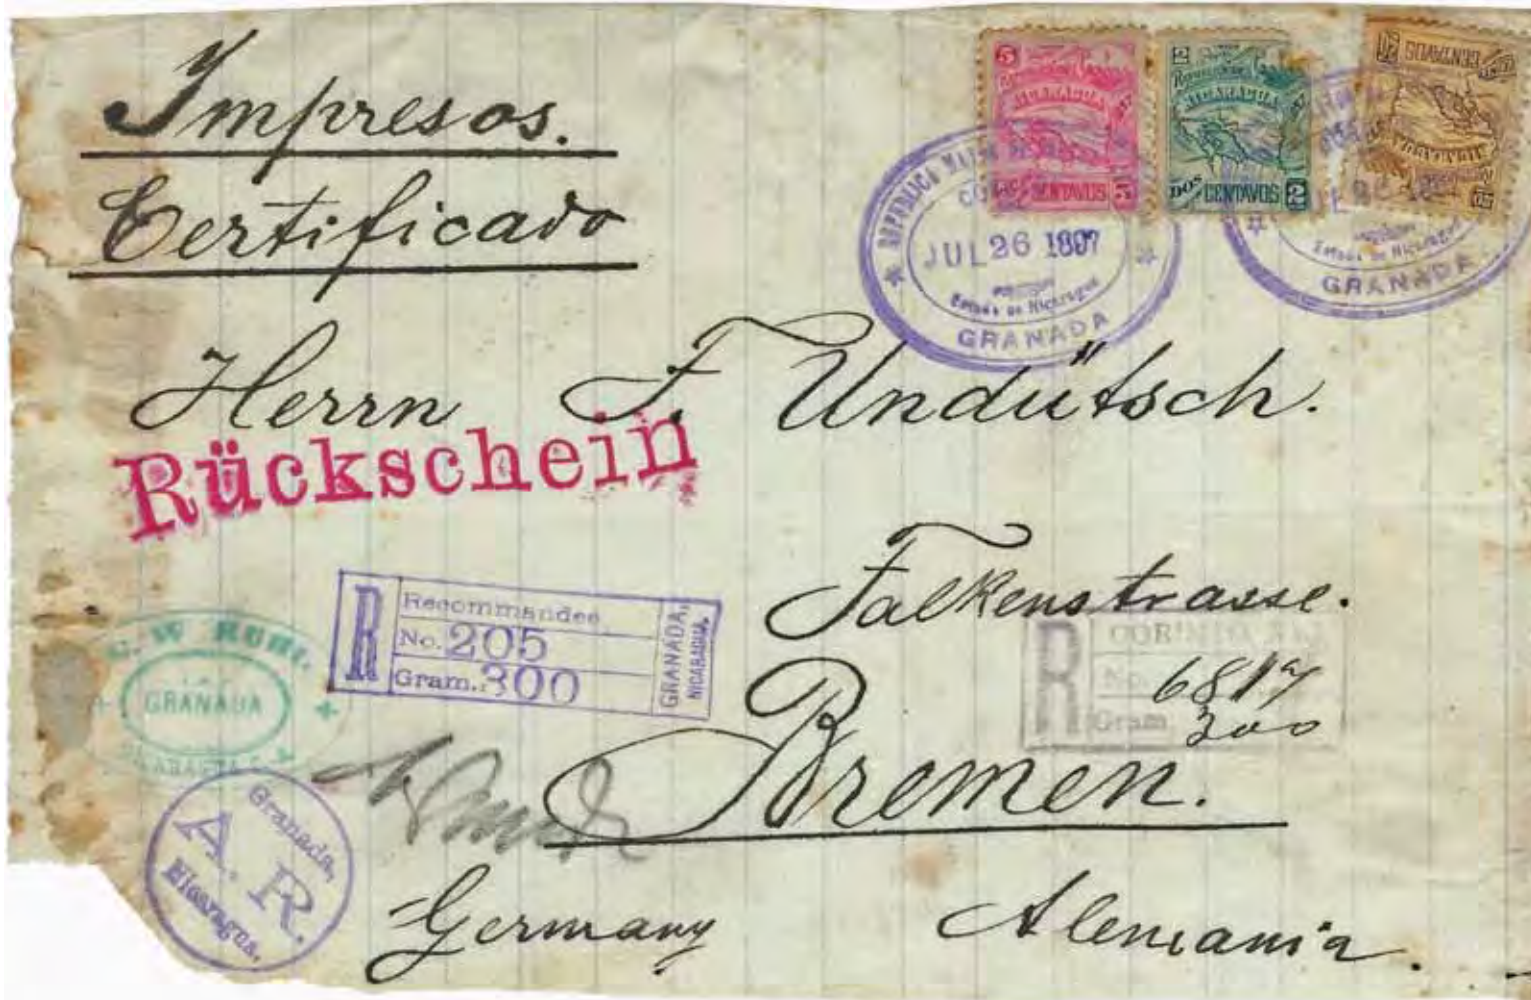 Impresos.
Certificado
5
NICARAGUA
CENTAVOS 5
2
NICARAGUA
DOS CENTAVOS 2
CENTAVOS
NICARAGUA
REPUBLICA MAYOR DE
JUL 26 1897
Estado de Nicaragua
GRANADA
Estado de Nicaragua
GRANADA
Herrn F. Undütsch.
Rückschein
Falkenstrasse.
R
Recommandee
No. 205
Gram. 300
GRANADA,
NICARAGUA.
R
CORINTO
No. 6817
Gram 300
GRANADA
Bremen.
Granada,
A. R.
Nicaragua.
Germany
Alemania.